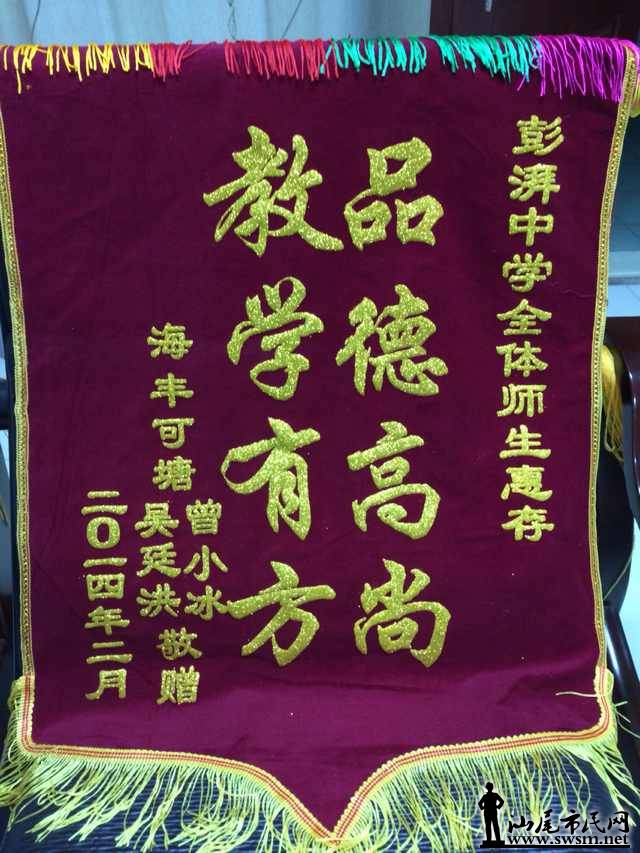 彭湃中学全体师生惠存
品德高尚
教学有方
海丰可塘
曾小冰
吴廷洪
敬赠
二〇一四年二月
汕尾市民网
www.swsm.net